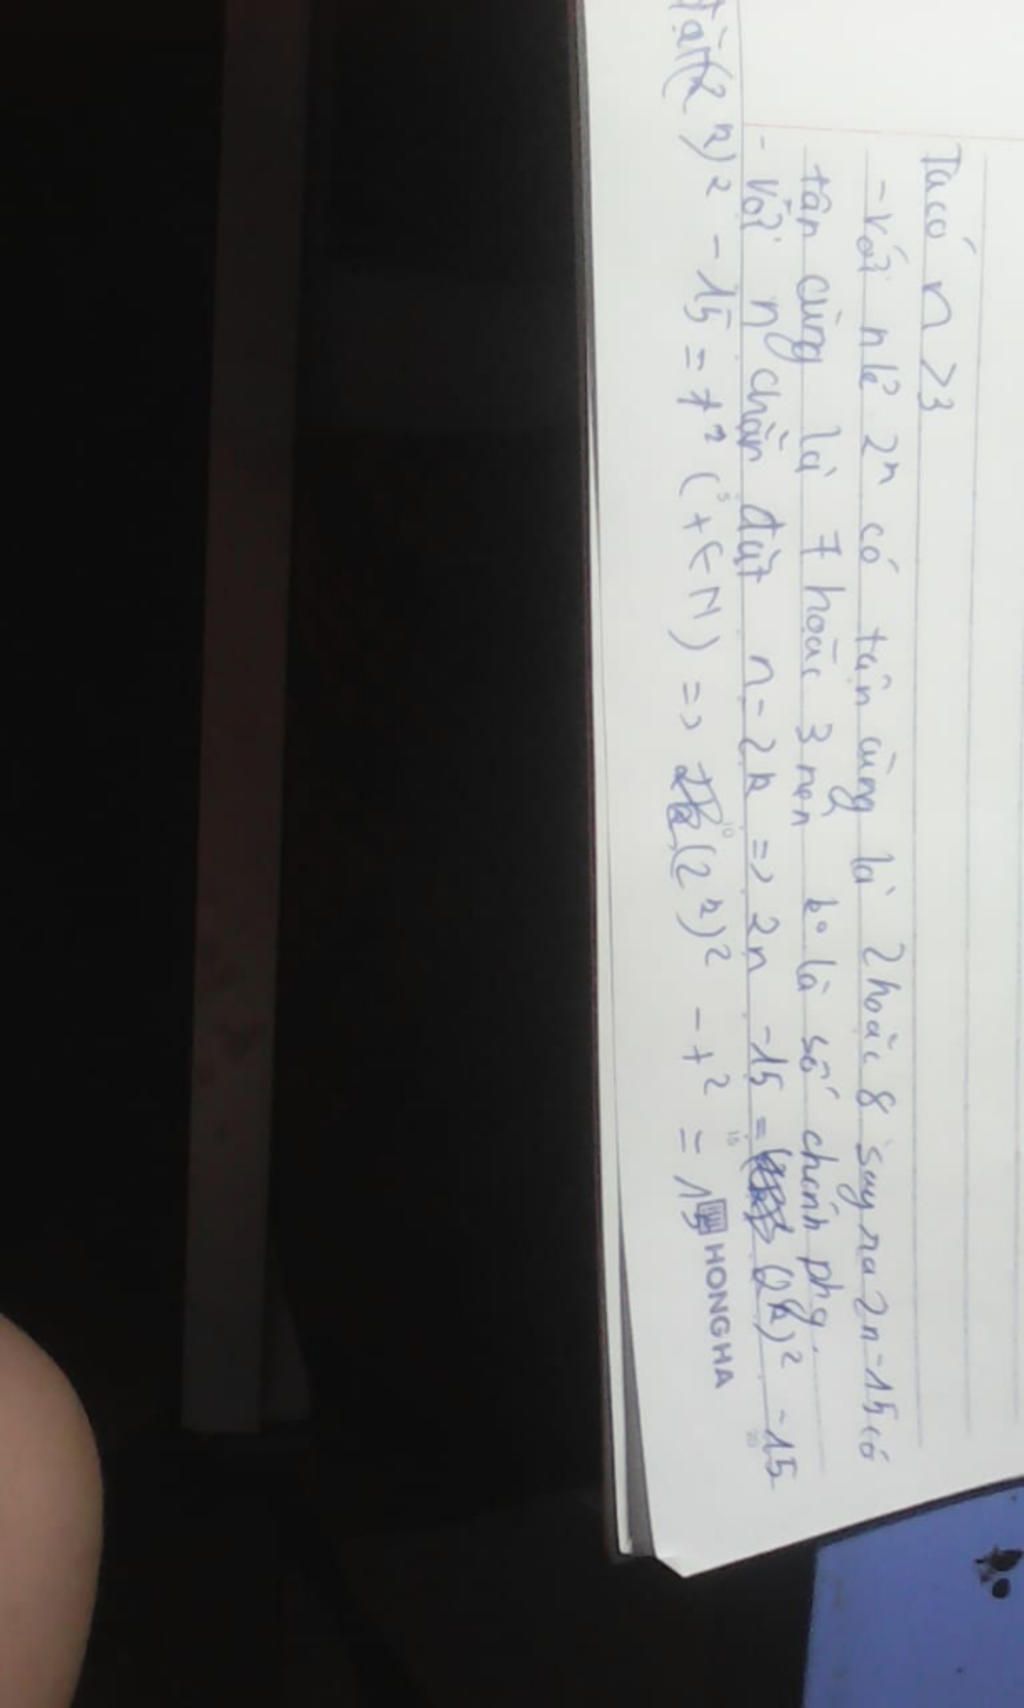 Ta có n > 3
- Với n lẻ 2ⁿ có tận cùng là 2 hoặc 8 suy ra 2n - 15 có
tận cùng là 7 hoặc 3 nên ko là số chính phg.
- Với n chẵn đặt n = 2k => 2n - 15 = (2k)² - 15
đặt (2k)² - 15 = t² (t ∈ N) => (2k)² - t² = 15
HONG HA
5
10
15
20